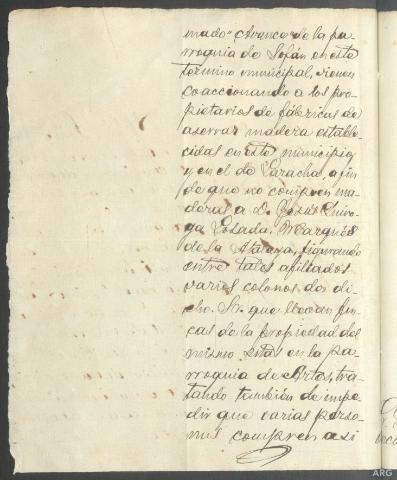 mado "Avance" de la pa-
rroquia de Sofán en este
término municipal, vienen
coaccionando a los pro-
pietarios de fábricas de
aserrar madera estable-
cidas en este municipio
y en el de Laracha, a fin
de que no compren ma-
deras a D. Jesús Quiro-
ga Losada, Marqués
de la Atalaya, figurando
entre tales afiliados
varios colonos de di-
cho Sr. que llevan fin-
cas de la propiedad del
mismo sitas en la pa-
rroquia de Artes, tra-
tando también de impe-
dir que varias perso-
nas compren así
ARG